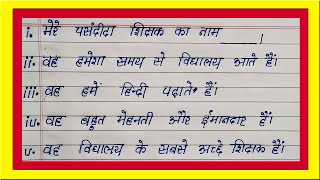 i. मेरे पसंदीदा शिक्षक का नाम ______।
ii. वह हमेशा समय से विद्यालय आते हैं।
iii. वह हमें हिन्दी पढ़ाते हैं।
iv. वह बहुत मेहनती और ईमानदार हैं।
v. वह विद्यालय के सबसे अच्छे शिक्षक हैं।